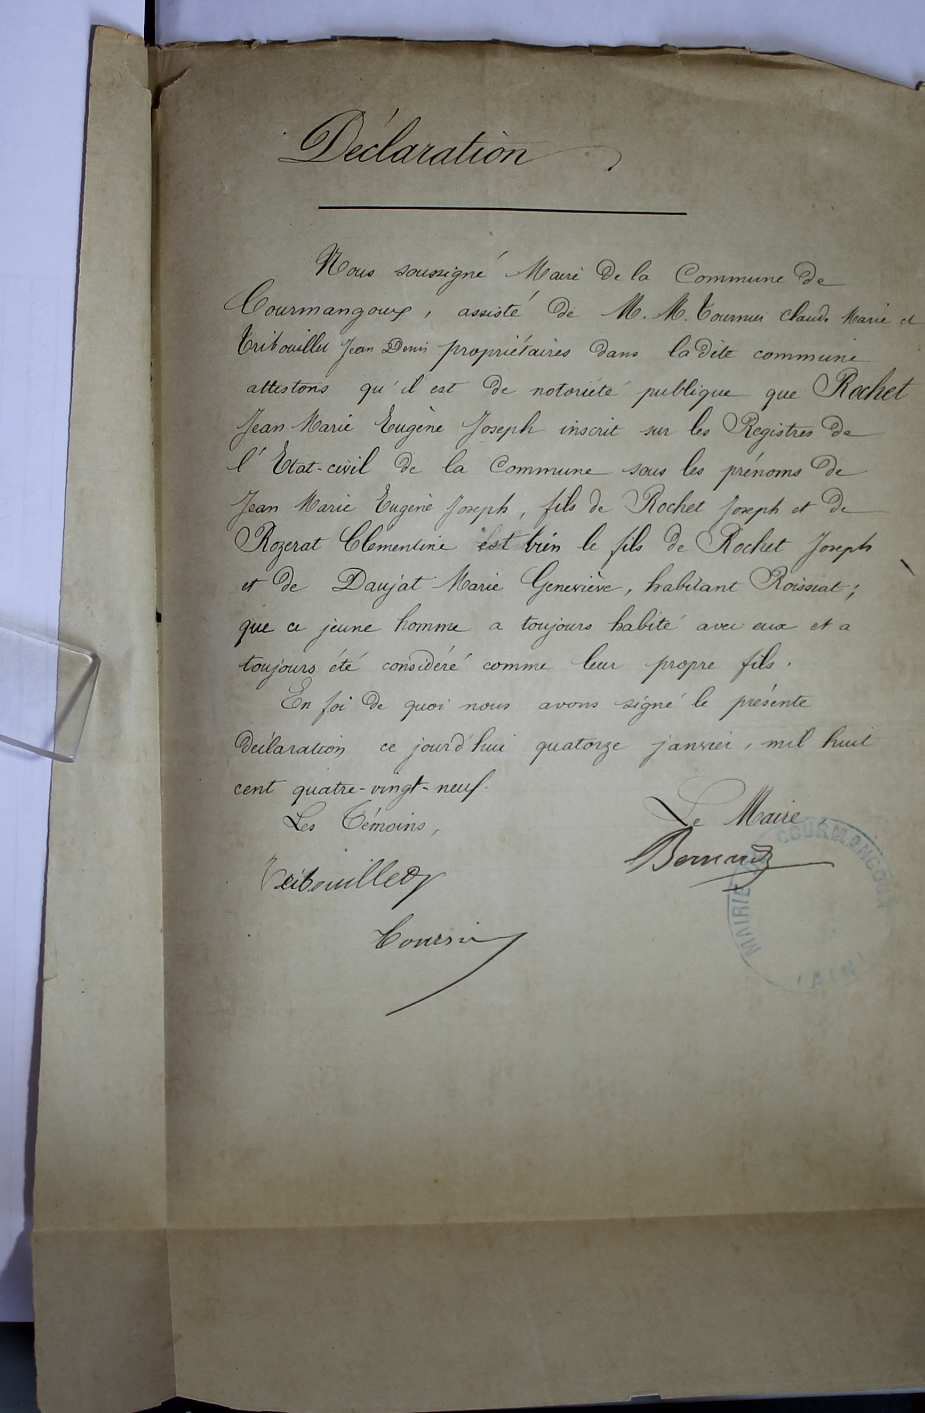 Déclaration
Nous soussigné Maire de la Commune de
Courmangoux, assisté de M. M. Tournier Claude Marie et
Tribouillet Jean Denis propriétaires dans la dite commune
attestons qu'il est de notoriété publique que Rochet
Jean Marie Eugène Joseph inscrit sur les Registres de
l'Etat-civil de la Commune sous les prénoms de
Jean Marie Eugène Joseph, fils de Rochet Joseph et de
Rozerat Clementine est bien le fils de Rochet Joseph
et de Daujat Marie Geneviève, habitant Roissiat;
que ce jeune homme a toujours habité avec eux et a
toujours été considéré comme leur propre fils.
En foi de quoi nous avons signé le présente
déclaration ce jourd'hui quatorze janvier, mil huit
cent quatre-vingt-neuf.
Les Témoins,
Le Maire
Tribouillet
MAIRIE DE COURMANGOUX
(AIN)